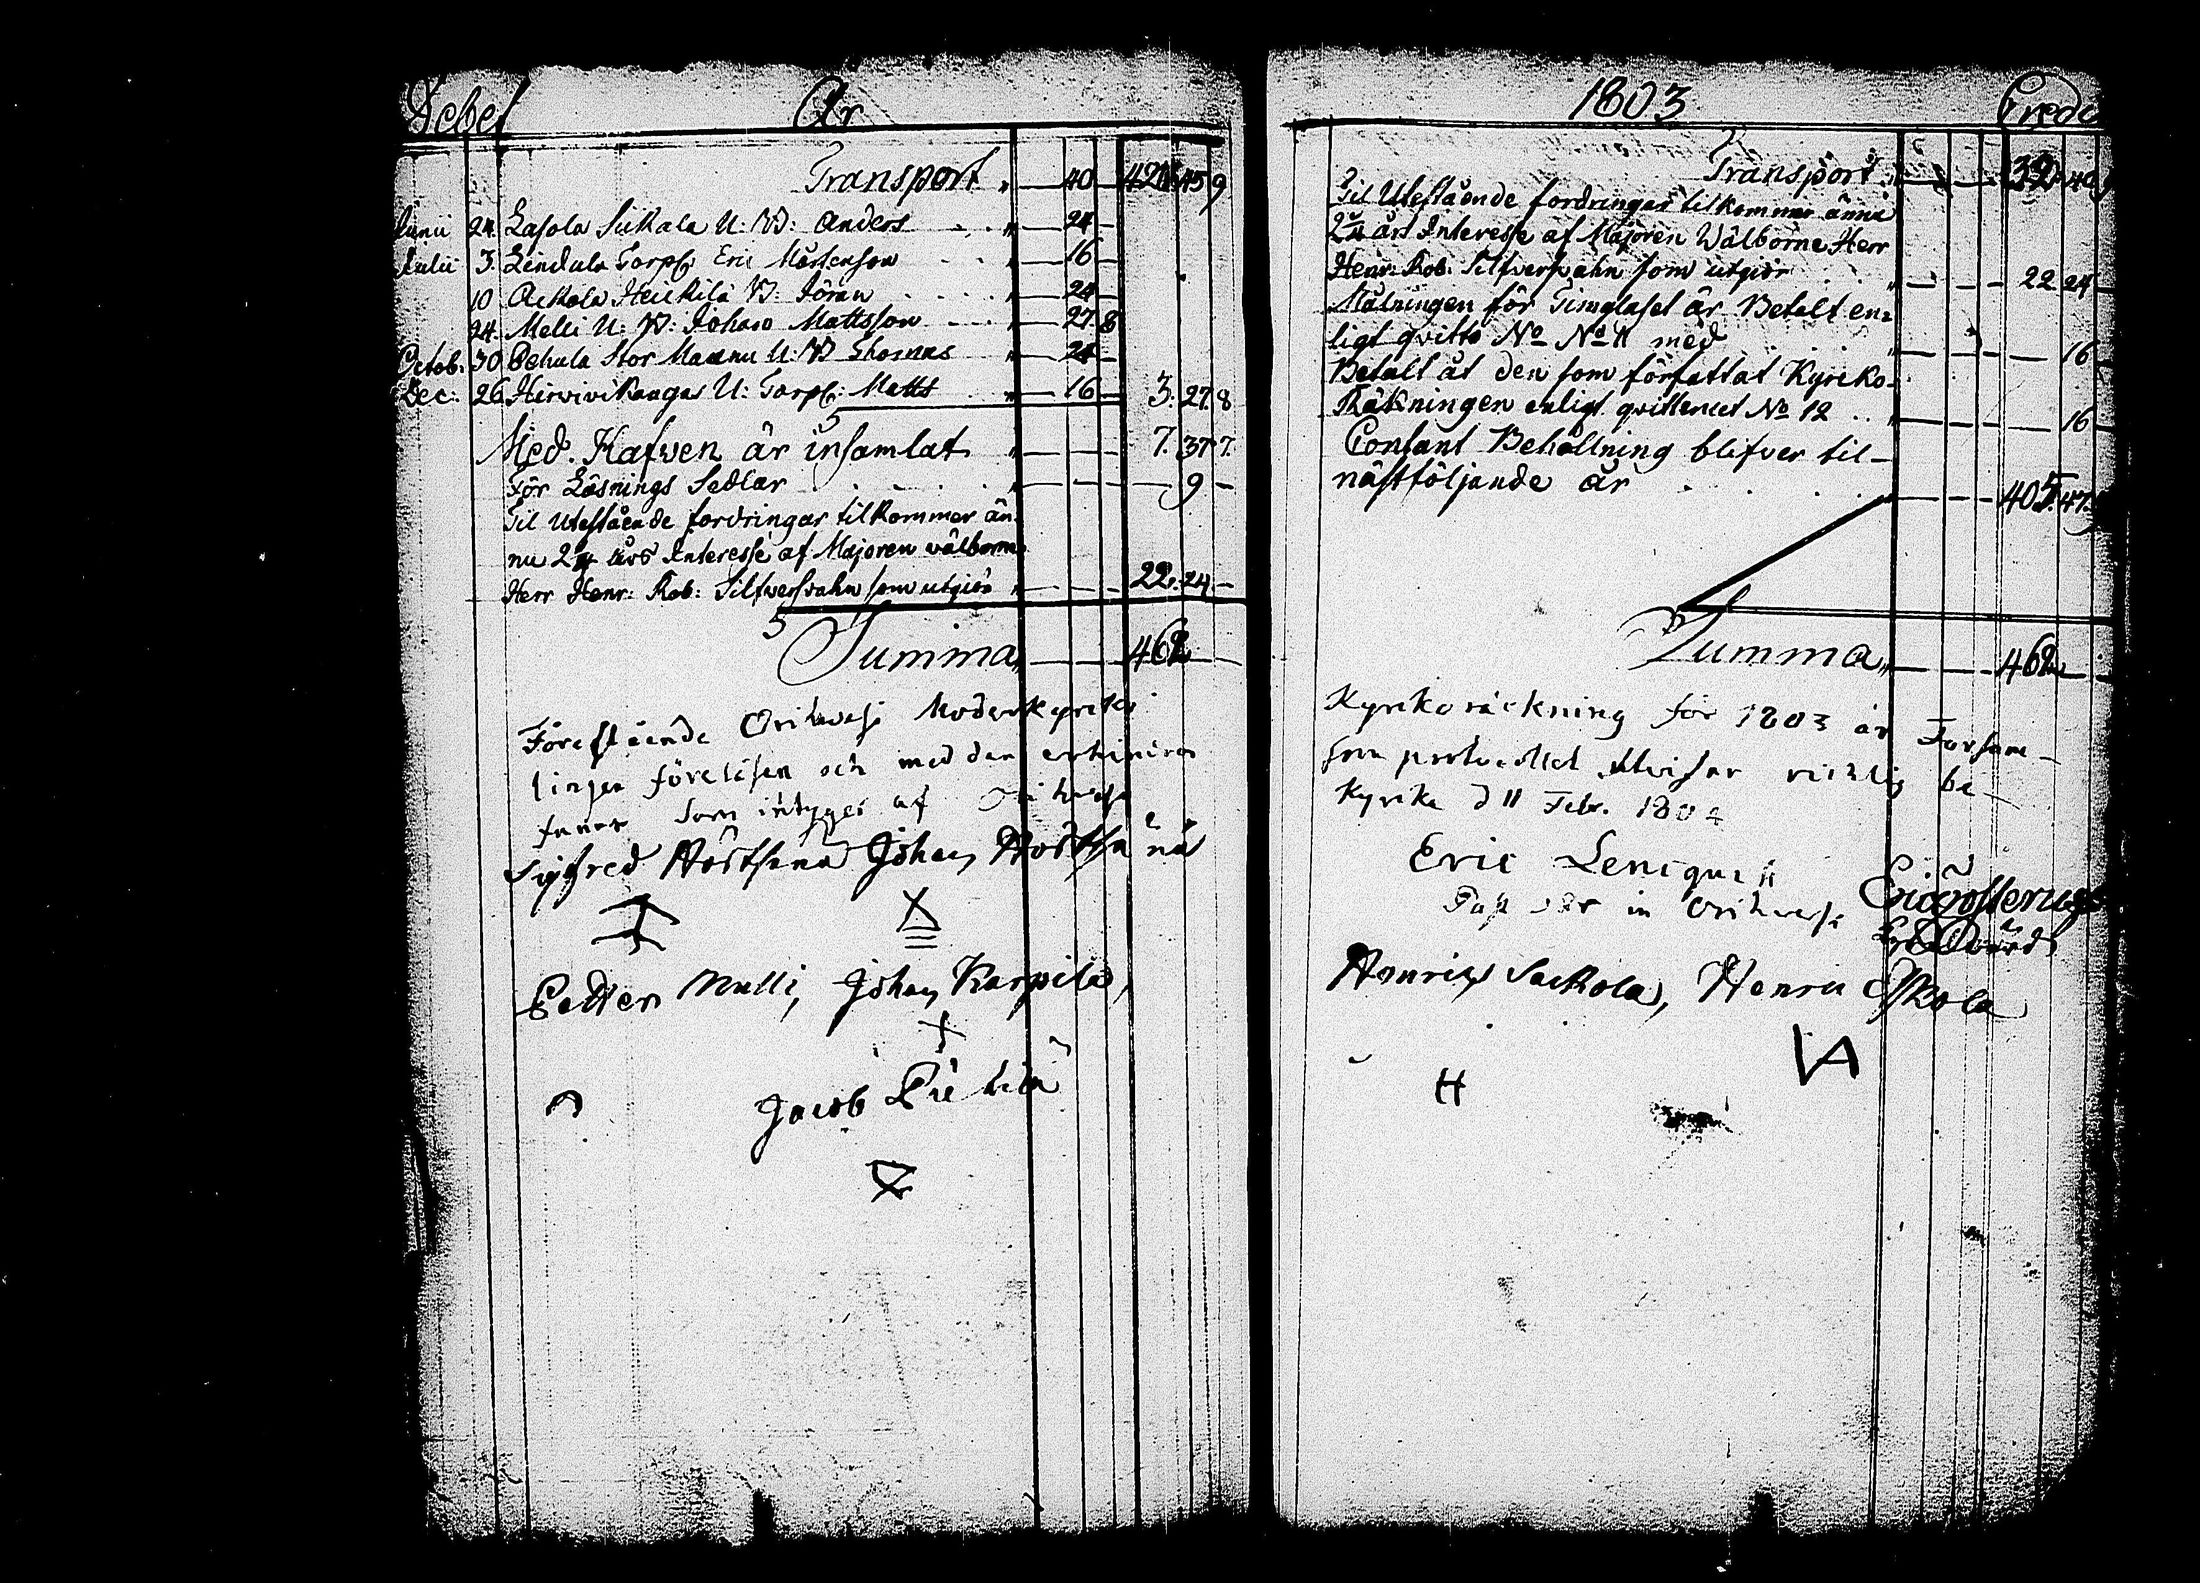 Debet År
Transport „ — 40 — 428. 45 9
Junii 24. Lasola Sukala U: W: Anders „ — 24 —
Julii 3. Lindula Torp: Eric Mårtenson „ — 16 —
10 Ackola Heickilä W: Jöran „ — 24 —
24. Melli U: W: Johan Mattsson „ — 27 8
Octob: 30 Pehula Stor Maunu U: W Thomas „ — 24 —
Dec: 26 Hirvivikangas U: Torp: Matts „ — 16 — 3. 27. 8
Med Hafven är insamlat „ — — — 7. 37 7.
För Läsnings Sedlar „ — — — — 9 —
Til Utestående fordringar tilkommer än-
nu 2 års Interesse af Majoren välborne
Herr Henr: Rob: Silfversvahn som utgiör „ — — — 22. 24. —
Summa „ — — — 462
Förestående Orihvesi Moderkyrkas
lingen föreläsen och med den
funnen som intyges af Orihvesi
Sigfred Hörtsänä Johan Hörtsänä
Petter Melli, Johan Karpila,
Jacob Pietilä
1803 Credit
Transport „ — — — 32. 40
Til Utestående fordringar tilkommer ännu
2 års Interesse af Majoren Wälborne Herr
Henr: Rob: Silfversvahn som utgiör „ — — — 22 24 —
Målningen för Timglaset är Betalt en-
ligt qvitto No No 11 med „ — — — 16 —
Betalt åt den som författat Kyrko-
Räkningen enligt qvittencet No 12 „ — — — 16 —
Contant Behållning blifver til-
nästföljande år — — — 405. 47.
Summa „ — — — 462
Kyrkoräckning för 1803 är Forsam-
som protocollet utvisar richtig be-
Kyrka d 11 Febr. 1804
Eric Lencquist
Pastor in Orihvesi
Henrich Sackola, Henric Eskola
H
VA